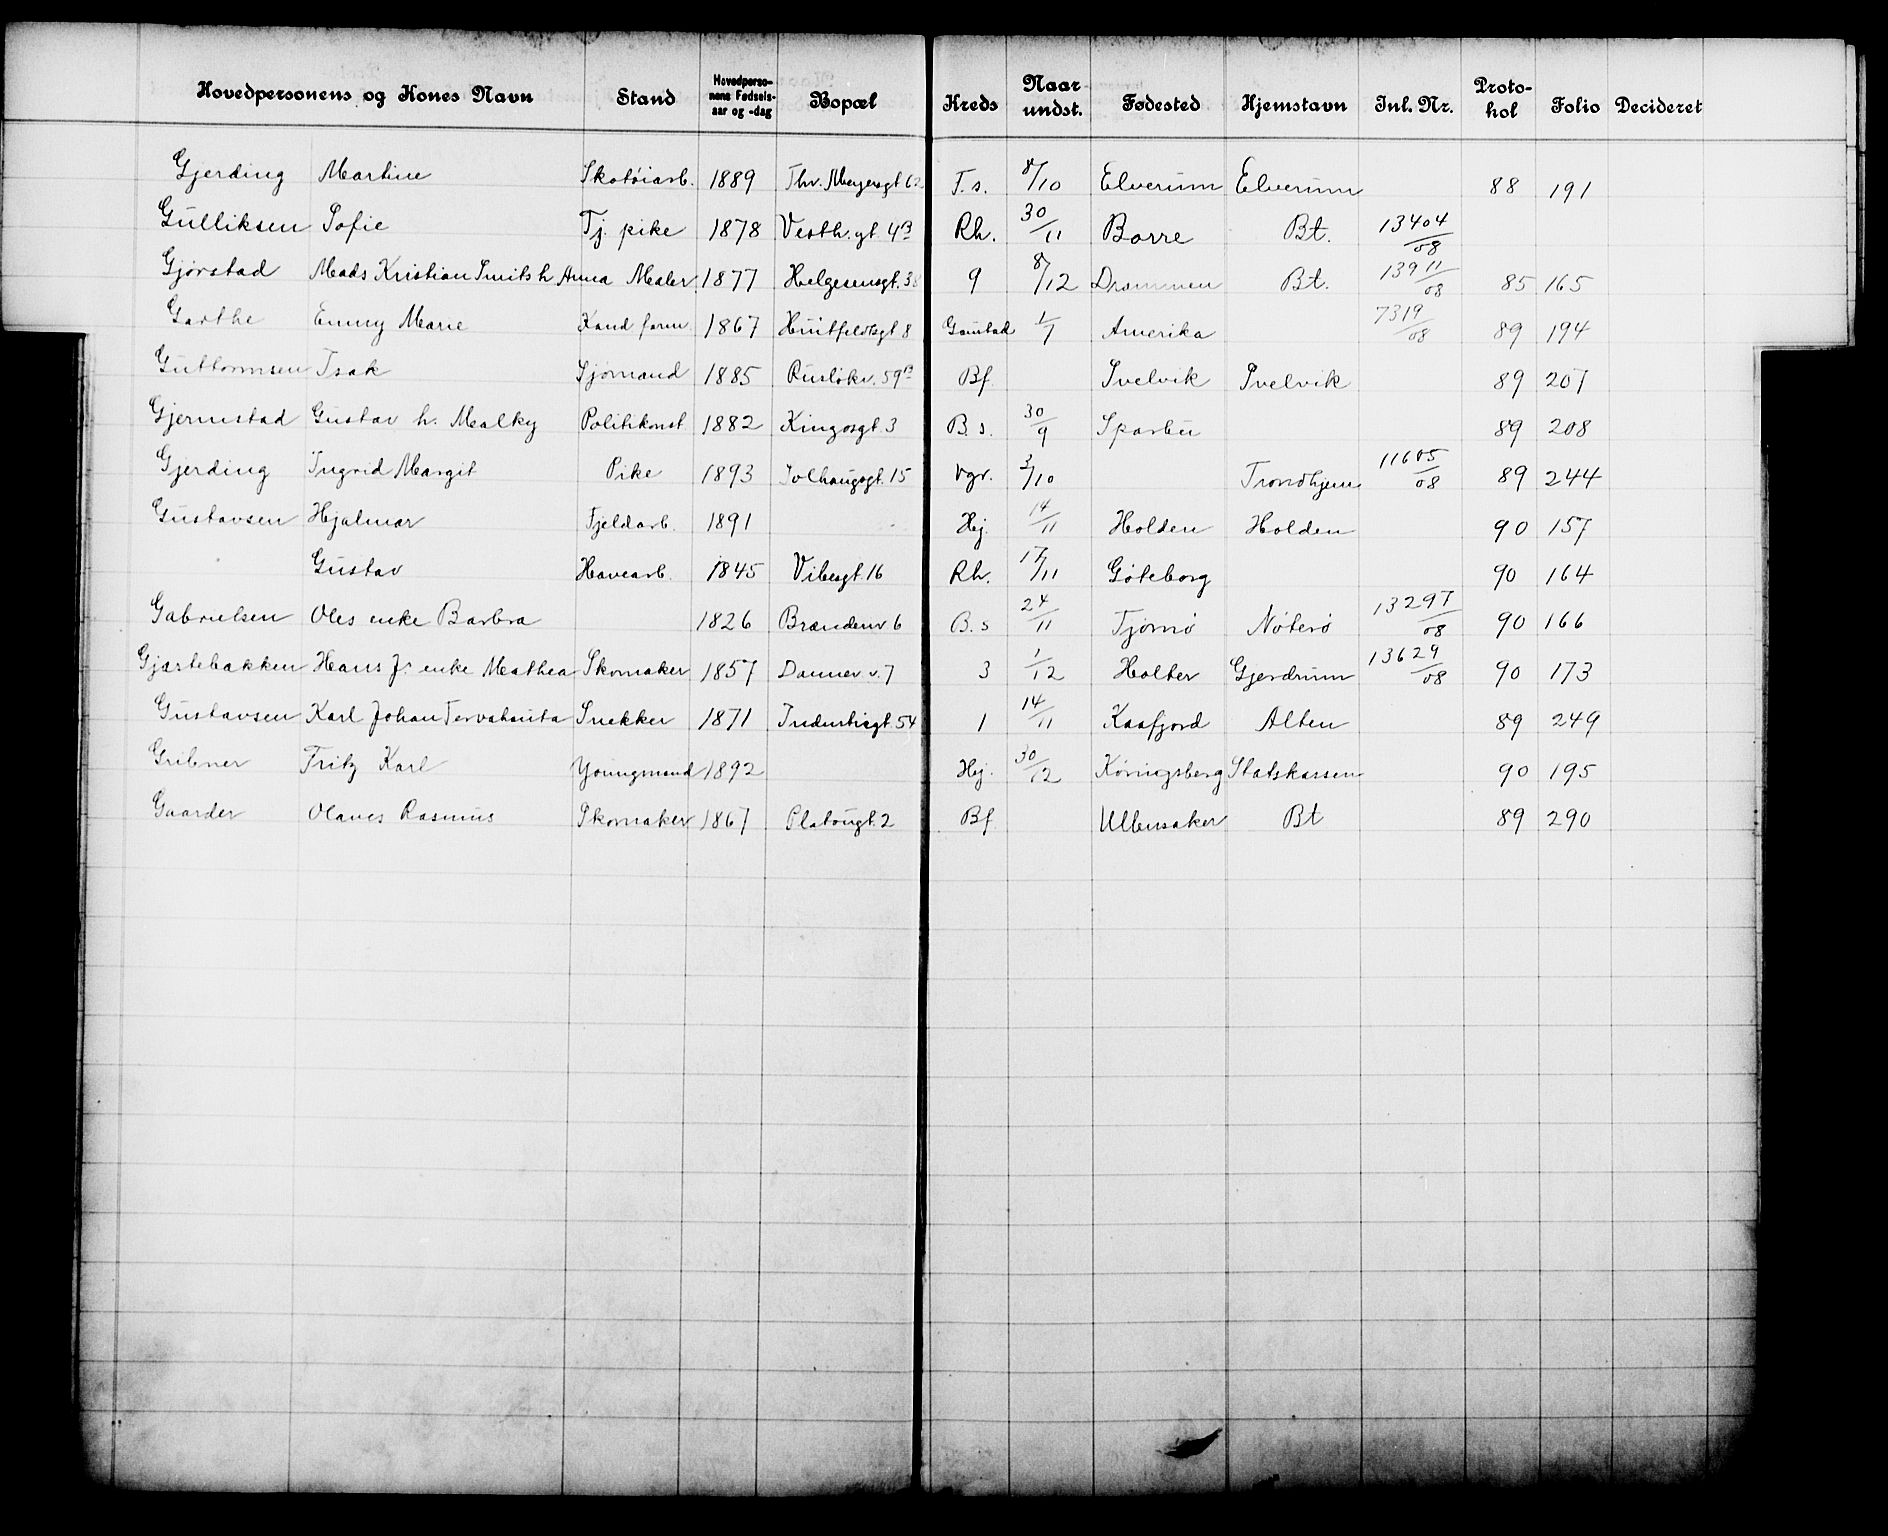 Hovedpersonens og Kones Navn Stand Hovedpersonens Fødselsaar og -dag Bopæl Kreds Naar undst. Fødested Hjemstavn Inl. Nr. Protokol Folio Decideret
Gjerding Martine Skotöiarb. 1889 Thv. Meyersgt 62 T.s. 8/10 Elverum Elverum 88 191
Gulliksen Sofie Tj. pike 1878 Vesth. gt. 4B Rh. 30/11 Borre Bt. 13404/08
Gjörstad Mads Kristian Smits h Anna Maler 1877 Helgesensgt. 38 9 8/12 Drammen Bt. 13911/08 85 165
Garthe Emmy Marie Kand farm 1867 Huitfeldtsgt 8 Gaustad 1/7 Amerika 7319/08 89 194
Guttormsen Isak Sjömand 1885 Rusløkv. 59B Bf. Svelvik Svelvik 89 207
Gjermstad Gustav h. Malky Politikonst 1882 Kingosgt. 3 B.s. 30/9 Sparbu 89 208
Gjerding Ingrid Margit Pike 1893 Tolhaugsgt. 15 Vgr. 3/10 Trondhjem 11605/08 89 244
Gustavsen Hjalmar Fjeldarb. 1891 Hej. 14/11 Holden Holden 90 157
Gustav Havearb. 1845 Vibesgt. 16 Rh. 17/11 Göteborg 90 164
Gabrielsen Oles enke Barbra 1826 Brændenv 6 B.s 24/11 Tjømø Nöterö 13297/08 90 166
Gjæstebakken Hans Jr enke Mathea Skomaker 1857 Dannev. v. 7 3 1/12 Holter Gjerdrum 13629/08 90 173
Gustavsen Karl Johan Tervahauta Snekker 1871 Industrigt. 54 1 14/11 Kaafjord Alten 89 249
Gribner Fritz Karl Youngmand 1892 Hej. 30/12 Köningsberg Statskassen 90 195
Gaarder Olaves Rasmus Skomaker 1867 Platougt. 2 Bf Ullensaker Bt 89 290